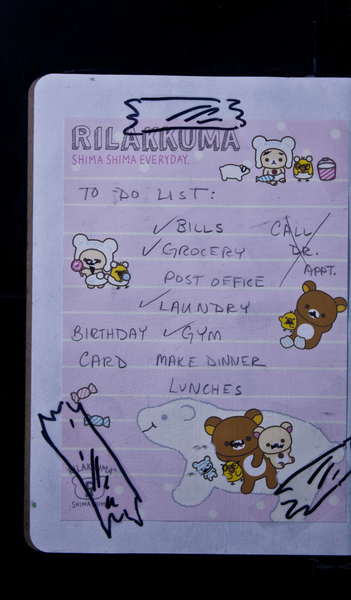 RILAKKUMA
SHIMA SHIMA EVERYDAY.
TO DO LIST:
✓ BILLS
✓ GROCERY
POST OFFICE
✓ LAUNDRY
✓ GYM
MAKE DINNER
LUNCHES
CALL
DR.
APPT.
BIRTHDAY
CARD
RILAKKUMA
SHIMA SHIMA